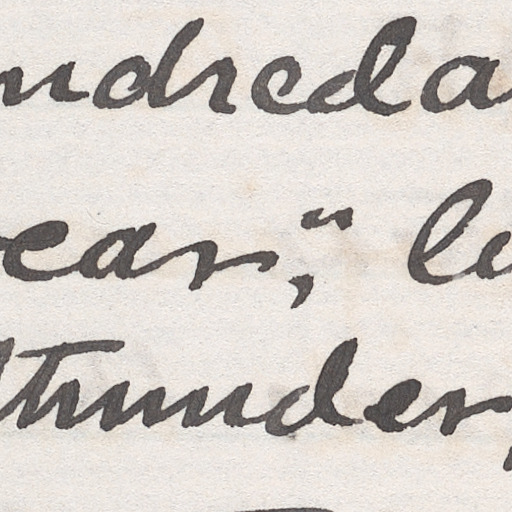 ndred a
ear," l
thunder,